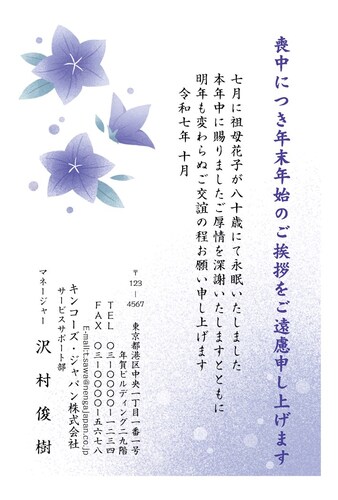 喪中につき年末年始のご挨拶をご遠慮申し上げます
七月に祖母花子が八十歳にて永眠いたしました
本年中に賜りましたご厚情を深謝いたしますとともに
明年も変わらぬご交誼の程お願い申し上げます
令和七年 十月
〒123-4567
東京都港区中央一丁目一番一号
年賀ビルディング二九階
TEL 〇三-〇〇〇〇-一二三四
FAX 〇三-〇〇〇〇-五六七八
E-mail:t.sawa@nengajapan.co.jp
キンコーズ・ジャパン株式会社
サービスサポート部
マネージャー 沢村俊樹